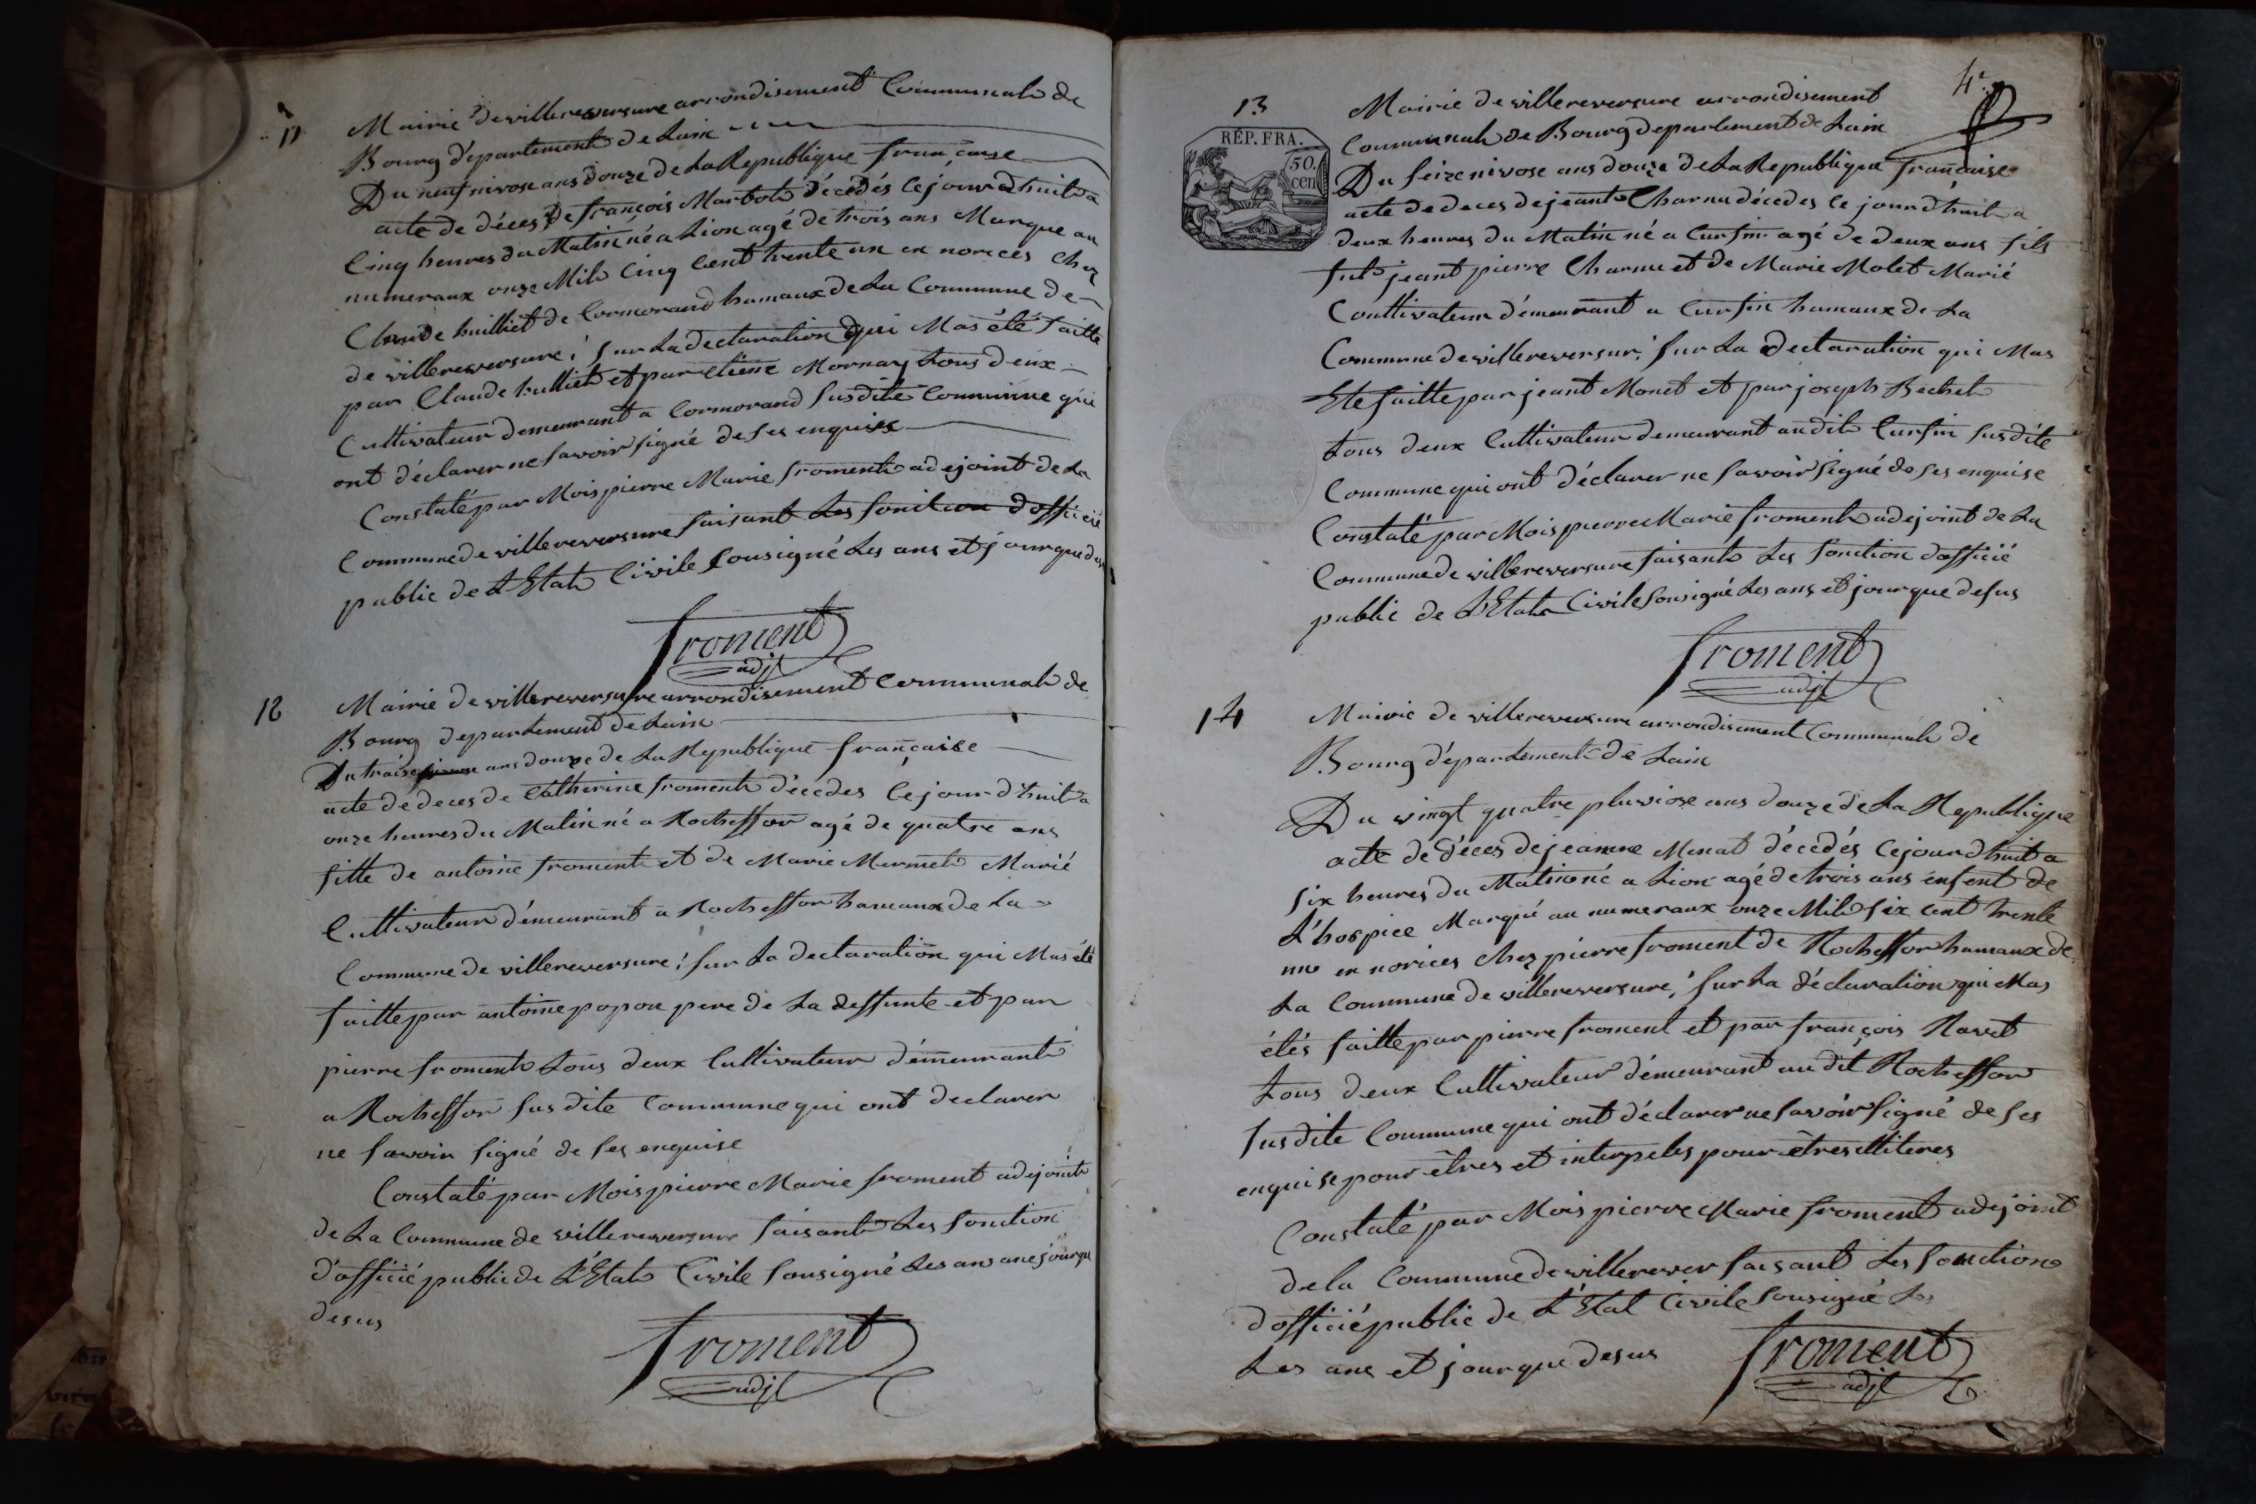 11
Mairie de villereversure arrondisement Communale de
Bourg département de Lain
Du neuf nivose ans douze de La Republique française
acte de déces De françois Marbot décédés Cejourdhuit a
Cinq heures du Matin né a Lion agé de trois ans Marque au
numeraux onze Mile Cinq Cent trente un en norices Chez
Claude huilliet de Cormorand hamaux de La Commune de
de villereversure, Sur La déclaration qui Mas été faitte
par Claude hulliet et par etiene Mornay tous deux
Cultivateur demeurant a Cormorand Susdite Commune qui
ont déclarer ne Savoir signé de Ses enquise
Constaté par Mois pierre Marie froment adejoint de La
Commune de villereversure faisant Les fonction dofficié
public de LEtat Civile Sousigné Les ans et jour que desu
froment
adjt
12
Mairie de villereversure arrondisement Communale de
Bourg departement de Lain
Du traise ans douze de La Republique française
acte de deces de Catherine froment décédes Cejourdhuit a
onze heures du Matin né a Rocheffor agé de quatre ans
fille de antoine froment et de Marie Mermet Marié
Cultivateur démeurant a Rocheffor hamaux de La
Commune de villereversure, Sur La declaration qui Mas été
faitte par antoine popon pere de La deffunte et par
pierre froment tous deux Cultivateur démeurant
a Rocheffor Sus dite Commune qui ont declarer
ne Savoir signé de Ses enquise
Constaté par Mois pierre Marie froment adejoint
de La Commune de villereversure faisant Les fonction
d'officié public de L'Etat Civile Sousigné Les ans jour que
desus
froment
adjt
4e
13
RÉP. FRA.
50.
cen
Mairie de villereversure arrondisement
Communale de Bourg departement de Lain
Du Seize nivose ans douze de La Republique française
acte de deces de jeant Charnu décédes Ce jourdhuit a
deux heures du Matin né a Cursin agé de deux ans fils
jeant pierre Charnu et de Marie Molet Marié
Coultivateur démeurant a Cursin hamaux de La
Commune de villereversur, Sur La declaration qui Mas
Eté faitte par jeant Monet et par joseph Bechet
tous deux Cultivateur demeurant audit Cursin susdite
Commune qui ont déclarer ne Savoir Signé de Ses enquise
Constaté par Mois pierre Marie froment adejoint de La
Commune de villereversure faisant Les fonction dofficié
public de L'Etat Civile Sousigné Les ans et jour que desus
froment
adjt
14
Mairie de villereversure arrondisement Communale de
Bourg département de Lain
Du vingt quatre pluviose ans douze de La Republique
acte de déces de jeanne Menat décédés Cejourdhuit a
Six heures du Matin né a Lion agé de trois ans enfent de
L'hospice Marqué au numeraux onze Mile Six cent trente
un en norices Chez pierre froment de Rocheffor hamaux de
La Commune de villereversure, Sur La déclaration qui Mas
étés faitte par pierre froment et par françois Ravet
tous deux Cultivateur démeurant au dit Rocheffor
Susdite Commune qui ont déclarer ne Savoir Signé de Ses
enquise pour êtres et interpeles pour êtres illiteres
Constaté par Mois pierre Marie froment adejoint
de la Commune de villerever faisant Les fonction
dofficié public de L'Etat Civile Sousigné Les
Les ans et jour que desus
froment
adjt